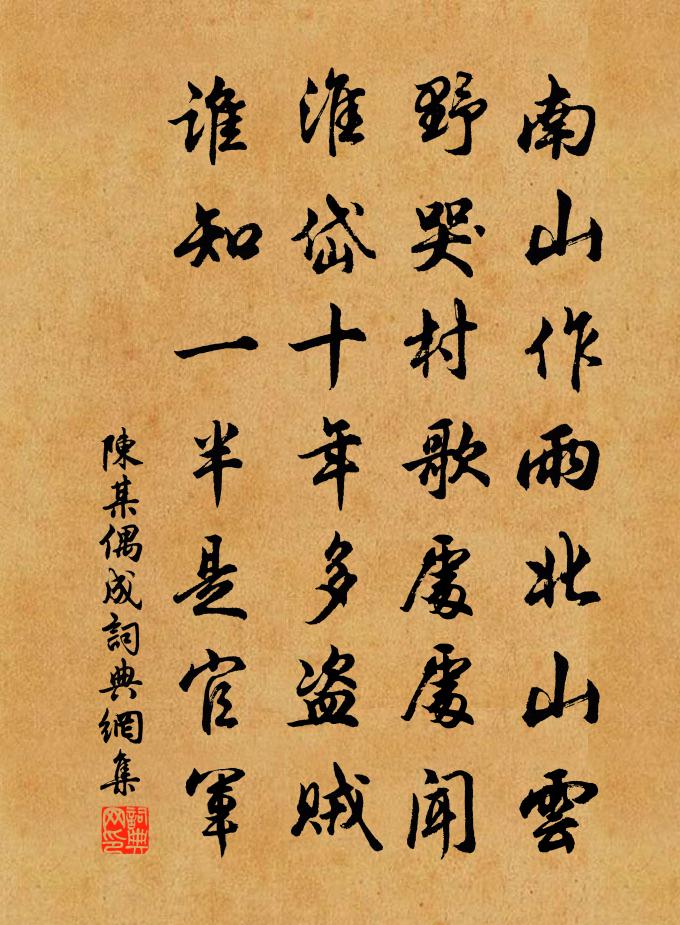 南山作雨北山雲
野哭村歌處處聞
淮岱十年多盗賊
谁知一半是官軍
陳某偶成詞典網集
詞典网印